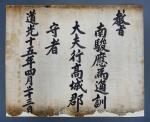 敎旨
南駿應爲通訓
大夫行高城郡
守者
道光十五年四月二十三日